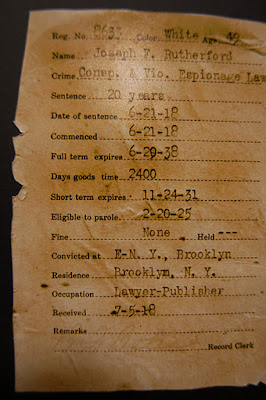 Reg. No. 8633 Color White Age 49
Name Joseph F. Rutherford
Crime Consp. & Vio. Espionage Law
Sentence 20 years
Date of sentence 6-21-18
Commenced 6-21-18
Full term expires 6-20-38
Days goods time 2400
Short term expires 11-24-31
Eligible to parole 2-20-25
Fine None Held ---
Convicted at E-N. Y., Brooklyn
Residence Brooklyn, N. Y.
Occupation Lawyer-Publisher
Received 7-5-18
Remarks
Record Clerk